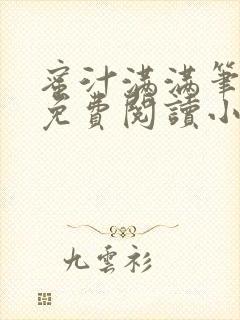 蜜汁满满筆
免費閱讀小
九雲衫